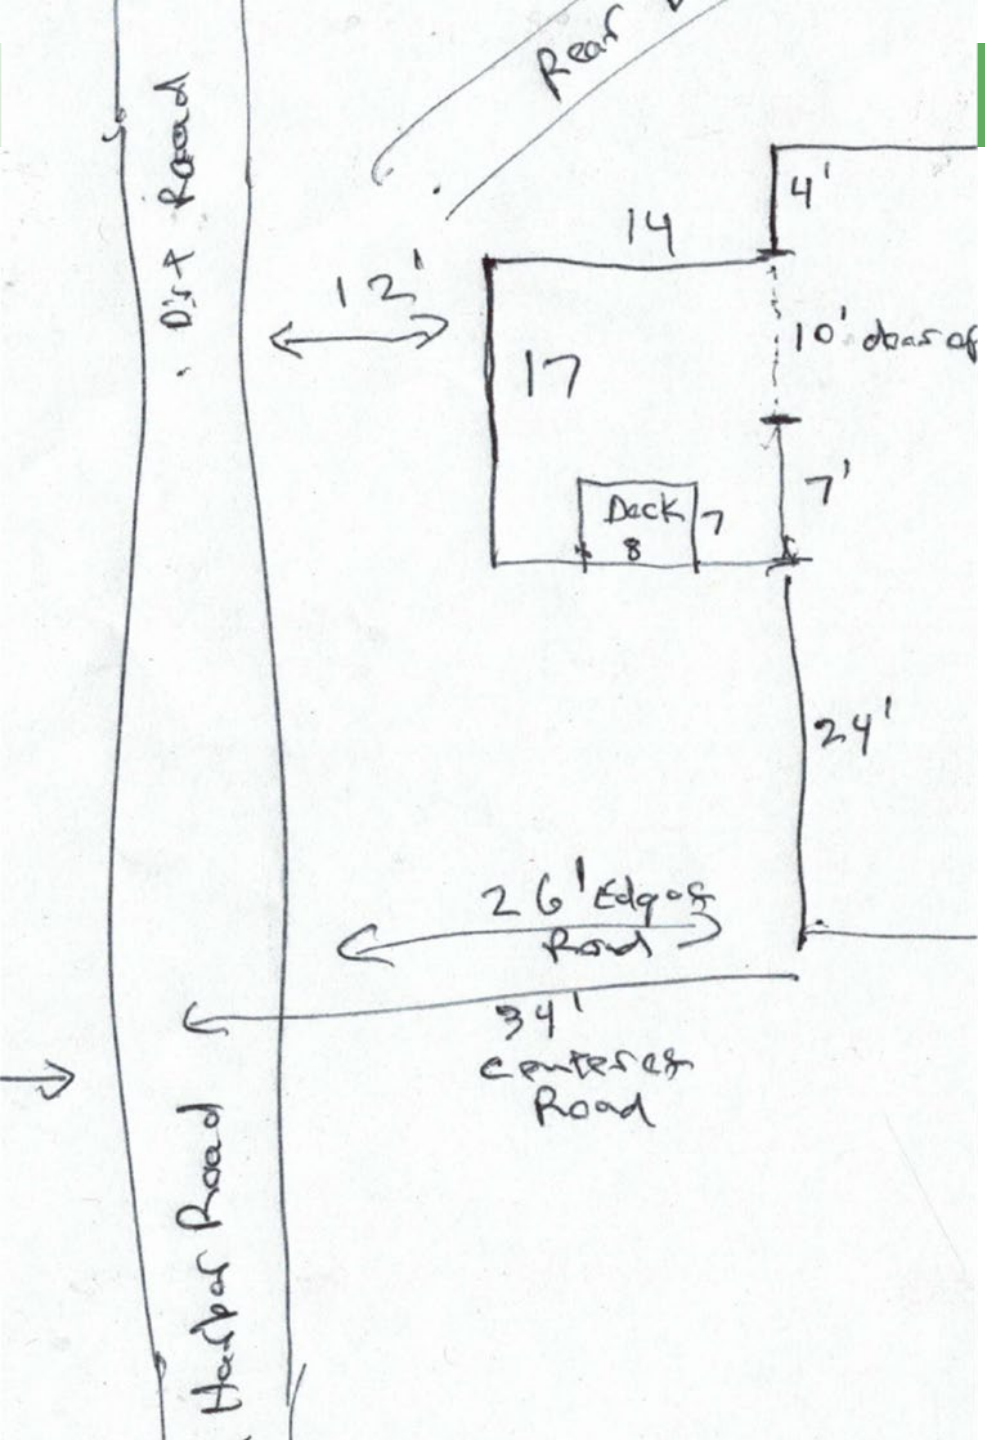 Rear
Dirt Road
4'
14
12'
10' door of
17
7'
Deck
7
8
24'
26' Edge of
Road
34'
Center of
Road
Harbor Road